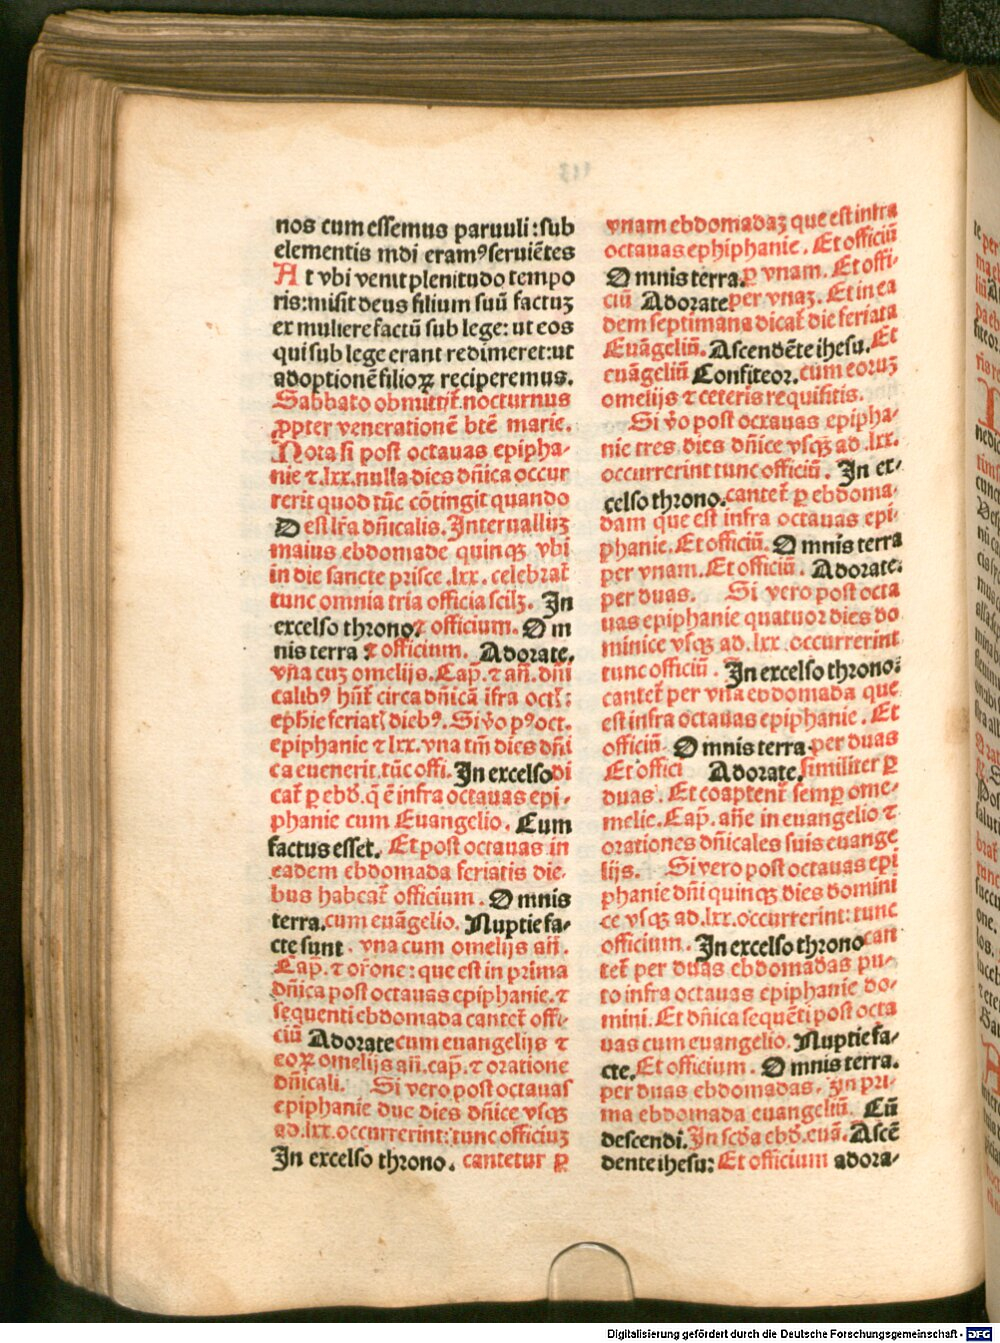 nos cum essemus paruuli : sub
elementis mdi eramꝰ seruiẽtes
At vbi venit plenitudo tempo
ris: misit deus filium suũ factuꝫ
ex muliere factũ sub lege: ut eos
qui sub lege erant redimeret: ut
adoptionẽ filioꝝ reciperemus.
Sabbato obmittit̃ nocturnus
ꝓpter venerationẽ btẽ marie.
Nota si post octauas epipha-
nie ⁊ .lxx. nulla dies dñica occur
rerit quod tũc cõtingit quando
D est lr̃a dñicalis. Interualluꝫ
maius ebdomade quinqꝫ vbi
in die sancte prisce .lxx. celebrat̃
tunc omnia tria officia scilꝫ. In
excelso throno. ⁊ officium. Om
nis terra : ⁊ officium. Adorate.
vña cuꝫ omelijs. Cap̃. ⁊ añ. dñi
calibꝰ hñt̃ circa dñicã ifra oct̃:
ephĩe feriatꝭ diebꝰ. Si v̾o pꝰ oct.
epiphanie ⁊ lxx. vna tm̃ dies dñi
ca euenerit. tũc offi. In excelso di
cat̃ ꝑ ebd. q̃ ẽ infra octauas epi-
phanie cum Euangelio. Cum
factus esset. Et post octauas in
eadem ebdomada feriatis die-
bus habeat̃ officium. Omnis
terra. cum euãgelio. Nuptie fa-
cte sunt. vna cum omelijs añ.
Cap̃. ⁊ or̃one: que est in prima
dñica post octauas epiphanie. ⁊
sequenti ebdomada cantet̃ offi-
ciũ Adorate cum euangelijs ⁊
eoꝝ omelijs añ. cap̃. ⁊ oratione
dñicali. Si vero post octauas
epiphanie due dies dñice vsqꝫ
ad .lxx. occurrerint: tunc officiuꝫ
In excelso throno. cantetur ꝑ
vnam ebdomadaꝫ que est infra
octauas ephiphanie. Et officiũ
Omnis terra. ꝑ vnam. Et offi-
ciũ Adorate per vnaꝫ. Et in ea
dem septimana dicat̃ die feriata
Euãgeliũ. Ascendẽte ihesu. Et
euãgeliũ Confiteor. cum eoruꝫ
omelijs ⁊ ceteris requisitis.
Si v̾o post octauas epipha-
nie tres dies dñice vsqꝫ ad .lxx.
occurrerint tunc officiũ. In ex-
celso throno. cantet̃ ꝑ ebdoma-
dam que est infra octauas epi-
phanie. Et officiũ. Omnis terra
per vnam. Et officiũ. Adorate.
per duas. Si vero post octa
uas epiphanie quatuor dies do
minice vsqꝫ ad .lxx. occurrerint
tunc officiũ. In excelso throno:
cantet̃ per vñã ebdomada que
est infra octauas epiphanie. Et
officiũ. Omnis terra. per duas
Et offici Adorate. similiter ꝑ
duas. Et coaptent̃ semꝑ ome-
melie. Cap̃. añe in euangelio ⁊
orationes dñicales suis euange
lijs. Si vero post octauas epi
phanie dñi quinqꝫ dies domini
ce vsqꝫ ad .lxx. occurrerint: tunc
officium. In excelso throno can
tet̃ per duas ebdomadas pu-
to infra octauas epiphanie do-
mini. Et dñica sequẽti post octa
uas cum euangelio. Nuptie fa-
cte. Et officium. Omnis terra.
per duas ebdomadas. In pri-
ma ebdomada euangeliũ. Cũ
descendi. In scd̃a ebd. euã. Ascẽ
dente ihesu: Et officium adora-
Digitalisierung gefördert durch die Deutsche Forschungsgemeinschaft - DFG